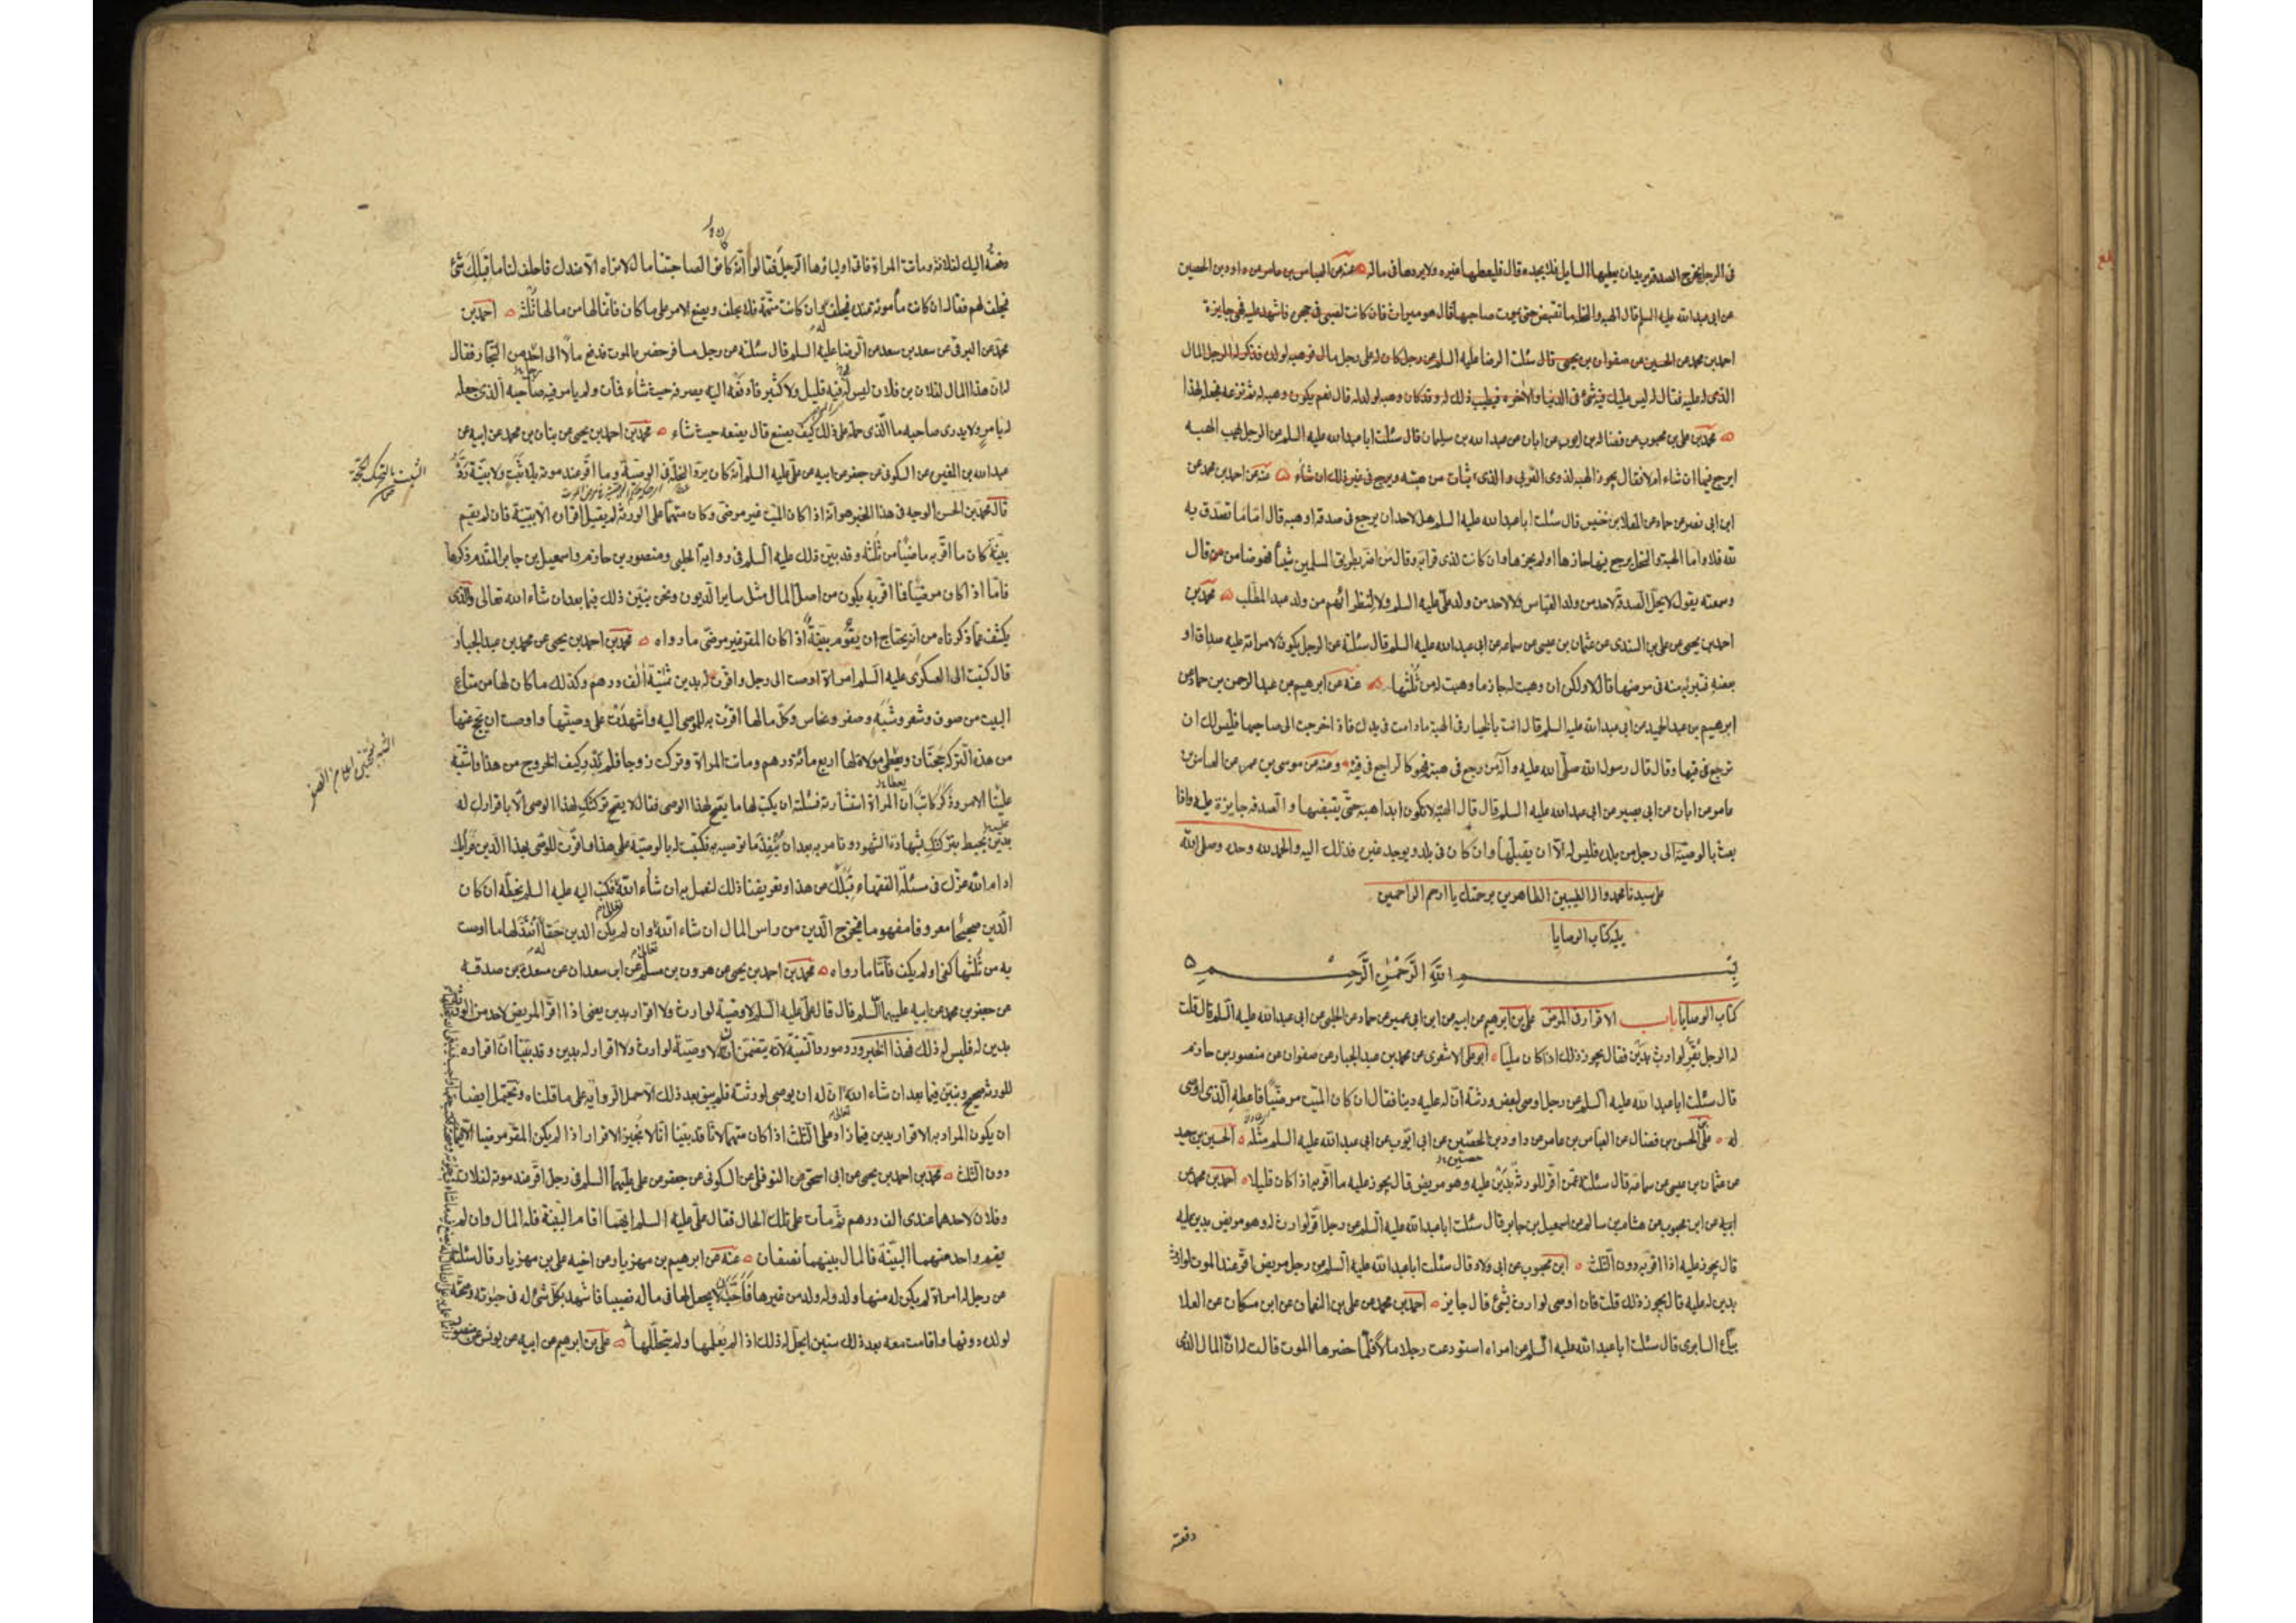 فى الرجل يخرج الصدقة يريد ان يعطيها السايل فلا يجده قال فليعطها غيره ولا يردها فى ماله ه عنه عن العباس بن عامر عن داود بن الحصين
عن ابى عبد الله عليه السلم قال الهبه والنحلة ما لم تقبض حتى يموت صاحبها قال هو ميراث فان كانت لصبى فى حجره فاشهد عليه فهى جايزة
احمد بن محمد عن الحسين عن صفوان بن يحيى قال سئلت الرضا عليه السلم عن رجل كان له على رجل مال فوهبه لولده فذكر له الرجل المال
الذى له عليه فقال له ليس عليك فيه شئ فى الدنيا والاخره يطيب ذلك له وقد كان وهبه لولد له قال نعم يكون وهبه له ثم نزعه فجعله لهذا
ه محمد بن على بن محبوب عن فضالة بن ايوب عن ابان عن عبد الله بن سليمان قال سئلت ابا عبد الله عليه السلم عن الرجل يهب الهبه
ايرجع فيها ان شاء ام لا فقال يجوز الهبه لذوى القربى والذى يثاب من هبته ويرجع فى غير ذلك ان شاء ه عنه عن احمد بن محمد عن
ابن ابى نصر عن حماد عن المعلا بن خنيس قال سئلت ابا عبد الله عليه السلم هل لاحد ان يرجع فى صدقة او هبه قال اما ما تصدق به
لله فلا واما الهبة والنحل يرجع فيها حازها او لم يحزها وان كانت لذى قرابه وقال من اضر بطريق المسلمين شيئا فهو ضامن قال
وسمعته يقول لا يحل الصدقة لاحد من ولد العباس ولا لاحد من ولد على عليه السلم ولا لنظرائهم من ولد عبد المطلب ه محمد بن
احمد بن يحيى عن على بن السندى عن عثمان بن عيسى عن سماعه عن ابى عبد الله عليه السلم قال سئلته عن الرجل يكون لامراته عليه صداق او
بعضه فتبرئه منه فى مرضها قال لا ولكن ان وهبت له جاز ما وهبت له من ثلثها ه عنه عن ابرهيم عن عبد الرحمن بن حماد عن
ابرهيم بن عبد الحميد عن ابى عبد الله عليه السلم قال انت بالخيار فى الهبة ما دامت فى يدك فاذا خرجت الى صاحبها فليس لك ان
ترجع فيها وقال قال رسول الله صلى الله عليه وآله من رجع فى هبته فهو كالراجع فى قيئه ه وعنه عن موسى بن عمر عن العباس بن
عامر عن ابان عن ابى بصير عن ابى عبد الله عليه السلم قال قال الهبة لا تكون ابدا هبة حتى يقبضها والصدقه جايزة عليه واذا
بعث بالوصية الى رجل من بلده فليس له الا ان يقبلها وان كان فى بلده ويوجد غيره فذلك اليه والحمد لله وحده وصلى الله
على سيدنا محمد واله الطيبين الطاهرين برحمتك يا ارحم الراحمين
يليه كتاب الوصايا
بسم الله الرحمن الرحيم
كتاب الوصايا باب الاقرار فى المرض على بن ابرهيم عن ابيه عن ابن ابى عمير عن حماد عن الحلبى عن ابى عبد الله عليه السلم قال قلت
له الرجل يقر لوارث بدين فقال يجوز ذلك اذا كان مليا ه ابو على الاشعرى عن محمد بن عبد الجبار عن صفوان عن منصور بن حازم
قال سئلت ابا عبد الله عليه السلم عن رجل اوصى لبعض ورثته ان له عليه دينا فقال ان كان الميت مرضيا فاعطه الذى اوصى
له ه على بن الحسن بن فضال عن العباس بن عامر عن داود بن الحصين عن ابى ايوب عن ابى عبد الله عليه السلم مثله ه الحسين بن سعيد
عن عثمان بن عيسى عن سماعة قال سئلته عمن اقر للورثة بدين عليه وهو مريض قال يجوز عليه ما اقر به اذا كان قليلا ه احمد بن محمد عن
ابيه عن ابن محبوب عن هشام بن سالم عن اسمعيل بن جابر قال سئلت ابا عبد الله عليه السلم عن رجل اقر لوارث له وهو مريض بدين عليه
قال يجوز عليه اذا اقر به دون الثلث ه ابن محبوب عن ابى ولاد قال سئلت ابا عبد الله عليه السلم عن رجل مريض اقر عند الموت لوارث
بدين له عليه قال يجوز ذلك قلت فان اوصى لوارث بشئ قال جايز ه احمد بن محمد عن على بن النعمان عن ابن مسكان عن العلا
بياع السابرى قال سئلت ابا عبد الله عليه السلم عن امراه استودعت رجلا مالا فلما حضرها الموت قالت له ان المال الذى
دفعته
دفعته اليك لفلانة وماتت المراة فاتى اولياؤها الرجل فقالوا انه كان لصاحبتنا مال لا نراه الا عندك فاحلف لنا ما قبلك شئ
فيحلف لهم فقال ان كانت مأمونة عنده فيحلف وان كانت متهمة فلا يحلف ويضع الامر على ما كان فانما لها من مالها ثلثه ه احمد بن
محمد عن البرقى عن سعد بن سعد عن الرضا عليه السلم قال سئلته عن رجل مسافر حضره الموت فدفع مالا الى احد من التجار فقال
له ان هذا المال لفلان بن فلان ليس له فيه قليل ولا كثير فادفعه اليه يصرفه حيث شاء فمات ولم يامر فيه صاحبه الذى جعله
له بامر ولا يدرى صاحبه ما الذى حمله على ذلك كيف يصنع قال يضعه حيث شاء ه محمد بن احمد بن يحيى عن بنان بن محمد عن ابيه عن
عبد الله بن المغيره عن السكونى عن جعفر عن ابيه عن على عليه السلم انه كان يرد النحلة فى الوصية وما اقر عند موته بلا ثبت ولا بينة رده
قال محمد بن الحسن الوجه فى هذا الخبر هو انه اذا كان الميت غير مرضى وكان متهما على الورثه لم يقبل اقراره الا ببينة فان لم يقم
بينة كان ما اقر به ماضيا من ثلثه وقد بين ذلك عليه السلم فى رواية الحلبى ومنصور بن حازم واسمعيل بن جابر المتقدم ذكرها
فاما اذا كان مرضيا فما اقر به يكون من اصل المال مثل ساير الديون ونحن نبين ذلك فيما بعد ان شاء الله تعالى والذى
يكشف عما ذكرناه من انه يحتاج ان يقوم بينة اذا كان المقر غير مرضى ما رواه ه محمد بن احمد بن يحيى عن محمد بن عبد الجبار
قال كتبت الى العسكرى عليه السلم امراة اوصت الى رجل واقرت له بدين ثمنية الف درهم وكذلك ما كان لها من متاع
البيت من صوف وشعر وشبه وصفر ونحاس وكل ما لها اقرت به للموصى اليه واشهدت على وصيتها واوصت ان يحج عنها
من هذه التركة حجتان ويعطى مولاة لها اربع مائة درهم وماتت المراة وتركت زوجا فلم ندر كيف الخروج من هذا واشتبه
علينا الامر وذكر كاتب ان المراة استشارته فسئلته ان يكتب لها ما يصح لهذا الوصى فقال لا يصح تركتك لهذا الوصى الا باقرارك له
بدين يحيط بتركتك بشهادة الشهود وتامريه بعد ان ينفذ ما توصيه به فكتبت له بالوصية على هذا واقرت للوصى بهذا الدين فرايك
ادام الله عزك فى مسئلة الفقهاء قبلك عن هذا وتعريفنا ذلك لنعمل به ان شاء الله فكتب اليه عليه السلم بخطه ان كان
الدين صحيحا معروفا مفهوما فيخرج الدين من راس المال ان شاء الله وان لم يكن الدين حقا انفذ لها ما اوصت
به من ثلثها كفى او لم يكف فاما ما رواه ه محمد بن احمد بن يحيى عن هرون بن مسلم عن ابى سعدان عن مسعدة بن صدقه
عن جعفر بن محمد عن ابيه عليهما السلم قال قال على عليه السلم لا وصية لوارث ولا اقرار بدين يعنى اذا اقر المريض لاحد من الورثة
بدين له فليس له ذلك فهذا الخبر ورد مورد التقية لانه يتضمن ان لا وصية لوارث ولا اقرار له بدين وقد بينا ان اقراره
للورثه صحيح ونبين فيما بعد ان شاء الله ان له ان يوصى لورثته فلم يبق بعد ذلك الا حمل الرواية على ما قلناه ويحتمل ايضا
ان يكون المراد به الاقرار بدين فيما زاد على الثلث اذا كان متهما لانا قد بينا انا لا نجيز الاقرار اذا لم يكن المقر مرضيا الا فيما
دون الثلث ه محمد بن احمد بن يحيى عن ابى اسحق عن النوفلى عن السكونى عن جعفر عن على عليهما السلم فى رجل اقر عند موته لفلان
وفلان لاحدهما عندى الف درهم ثم مات على تلك الحال فقال على عليه السلم ايهما اقام البينة فله المال وان لم
يقم واحد منهما البينة فالمال بينهما نصفان ه عنه عن ابرهيم بن مهزيار عن اخيه على بن مهزيار قال سئلته
عن رجل له امراة لم يكن له منها ولد وله ولد من غيرها فاحب ان لا يجعل لها فى ماله نصيبا فاشهد بكل شئ له فى حيوته وصحته
لولده دونها واقامت معه بعد ذلك سنين ايحل له ذلك اذا لم يعلمها ولم يتحللها ه على بن ابرهيم عن ابيه عن يونس عن